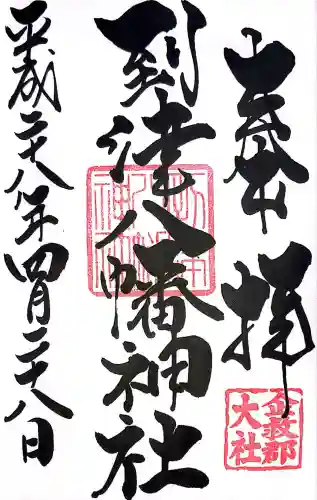 奉拝
企救郡
大社
到津八幡神社
平成二十八年四月二十八日